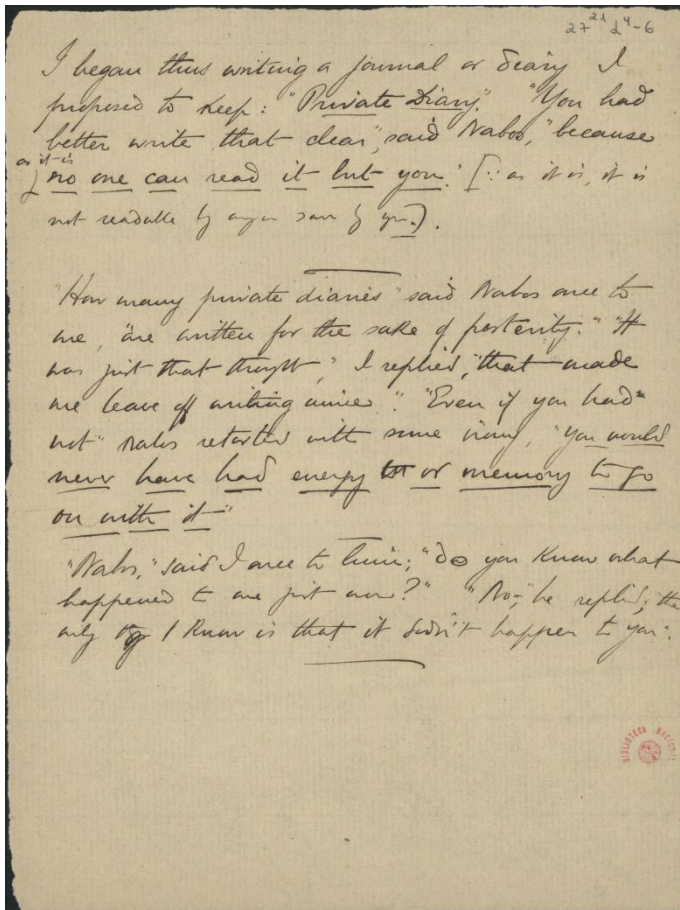 27 21 d4-6
I began thus writing a journal or diary I
proposed to keep: "Private Diary". "You had
better write that clear", said Nabos, "because
as it is
no one can read it but you." [∵ as it is, it is
not readable by anyone save by you.).
"How many private diaries" said Nabos once to
me, "are written for the sake of posterity." "It
was just that thought," I replied, "that made
me leave off writing mine". "Even if you had
not" Nabos retorted with some irony, "you would
never have had energy or memory to go
on with it"
"Nabos," said I once to him; "do you know what
happened to me just now?" "No", he replied; "the
only I know is that it didn't happen to you".
BIBLIOTECA NACIONAL